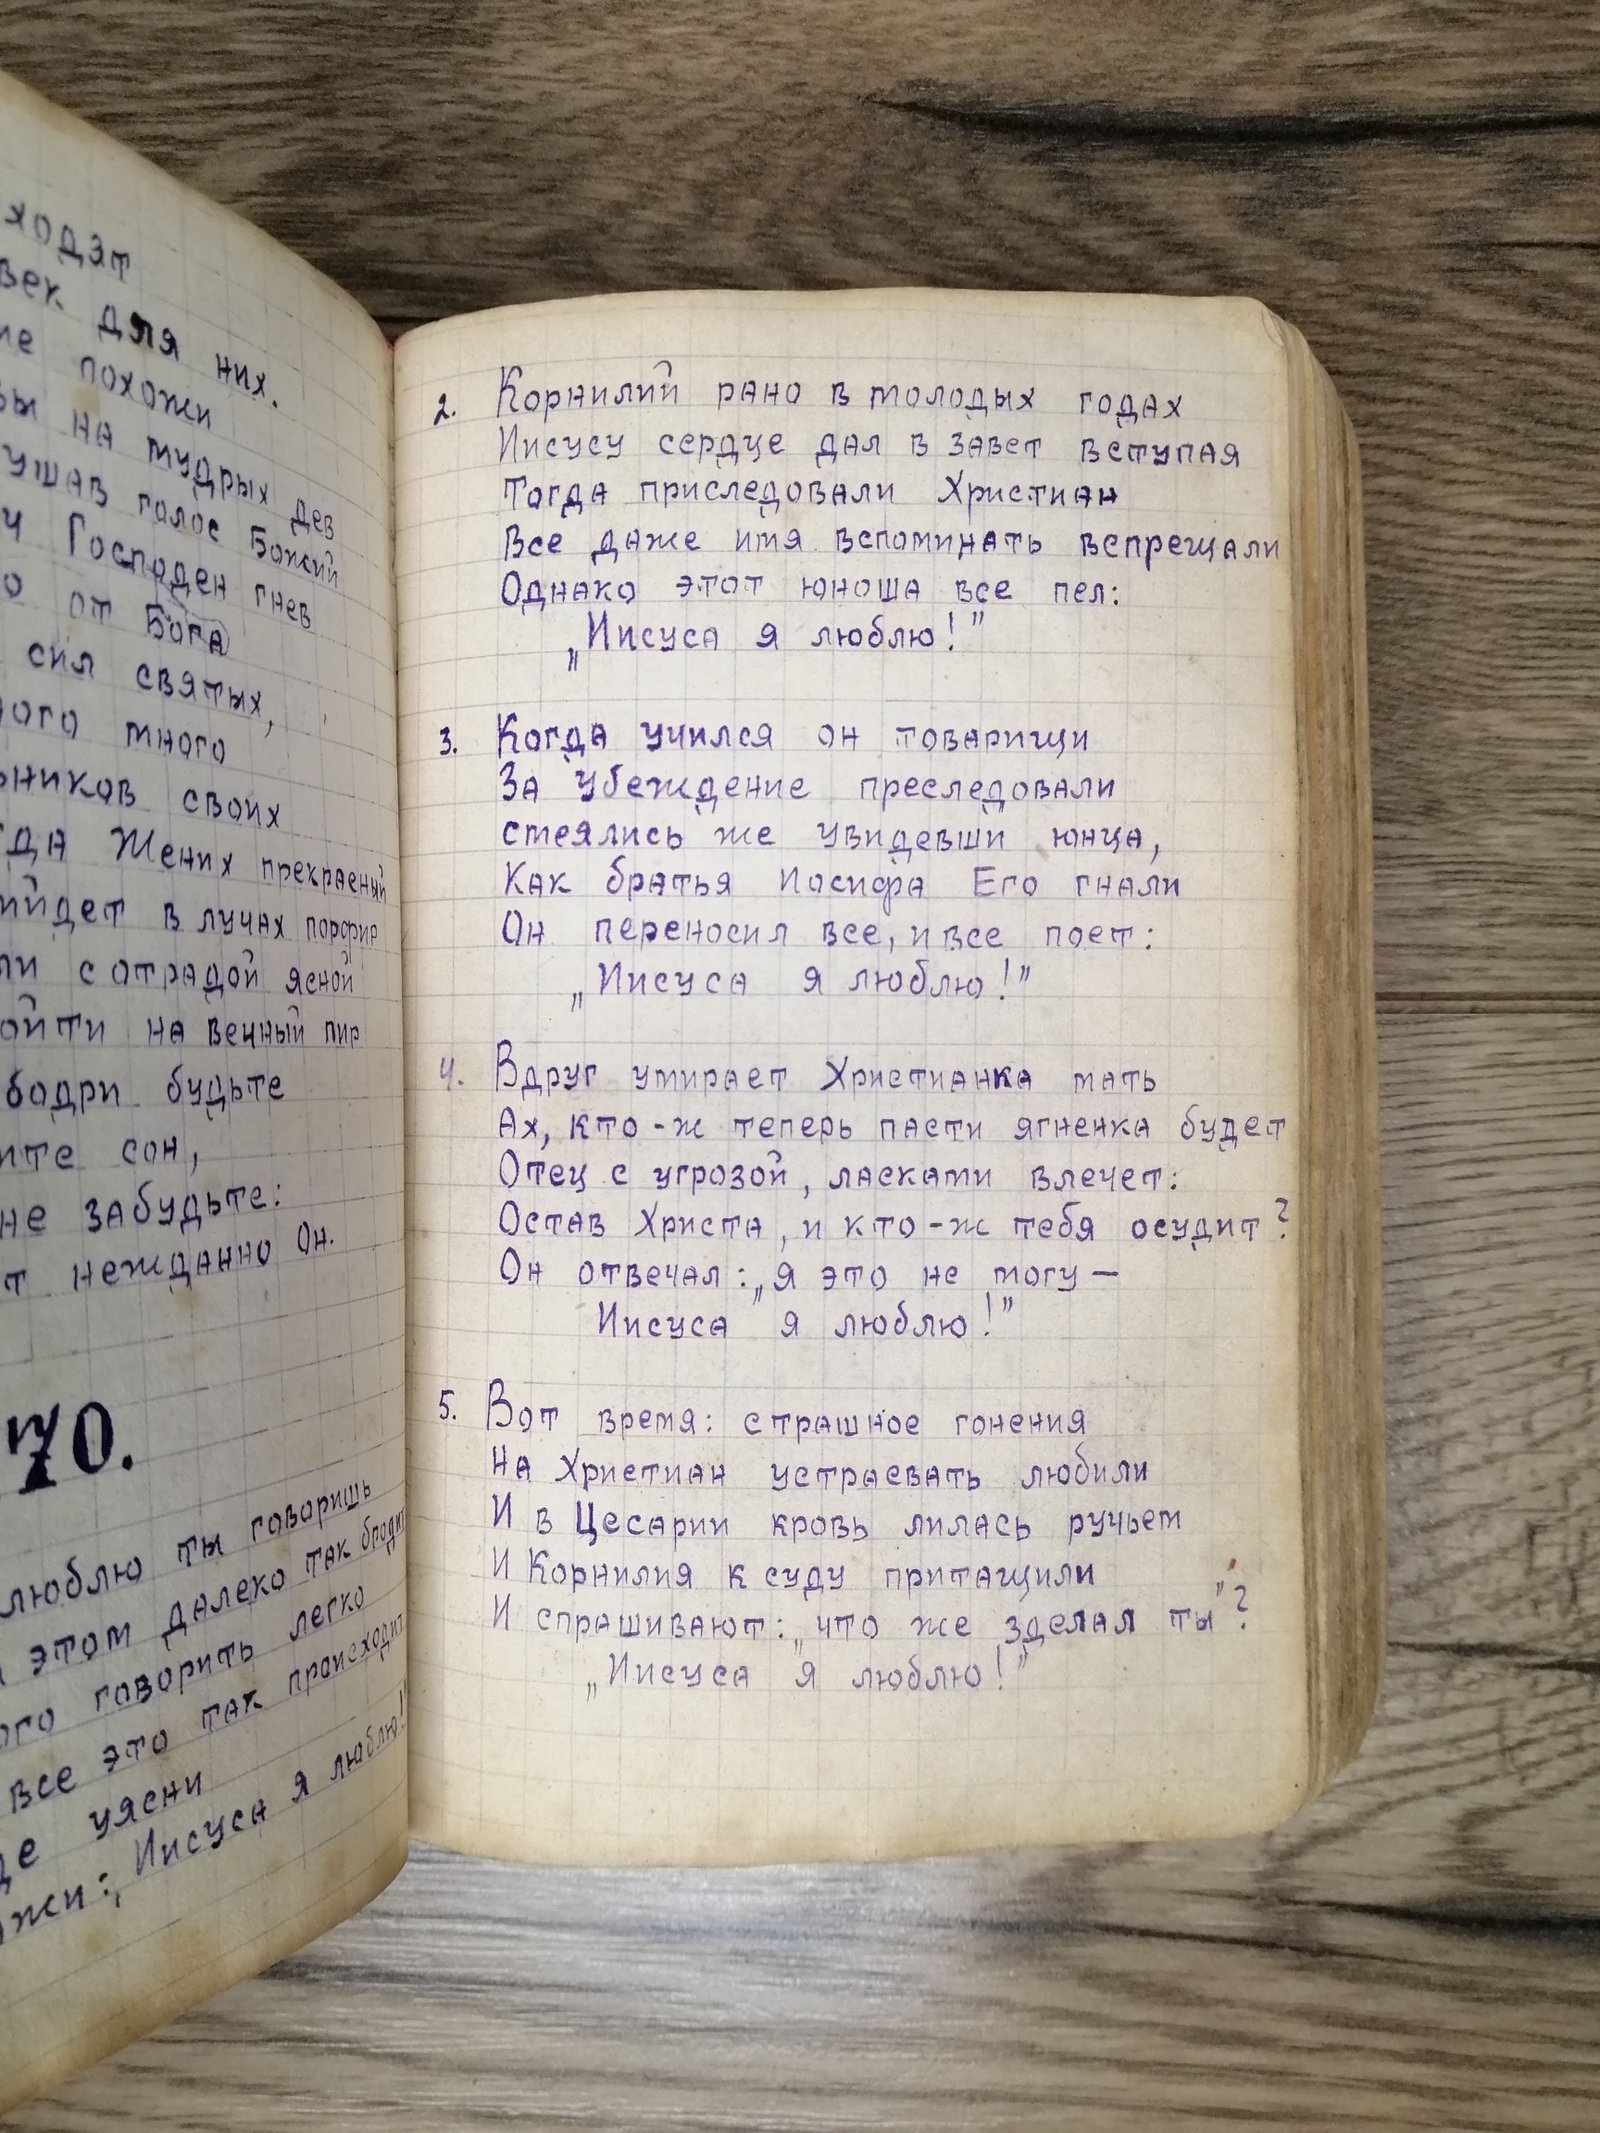 ходят
век для них.
похожи
на мудрых дев
голос Божий
Господен гнев
от Бога
сил святых,
много
своих
Жених прекрасный
в лучах порфир
с отрадой ясной
на вечный пир
бодри будьте
сон,
не забудьте:
нежданно Он.
70.
люблю ты говоришь
этом далеко так бродит
говорить легко
все это так происходит
уясни
„Иисуса я люблю!
2. Корнилий рано в молодых годах
Иисусу сердце дал в завет вступая
Тогда приследовали Христиан
Все даже имя вспоминать вспрещали
Однако этот юноша все пел:
„Иисуса я люблю!”
3. Когда учился он товарищи
За убеждение преследовали
смеялись же увидевши юнца,
Как братья Иосифа Его гнали
Он переносил все, и все поет:
„Иисуса я люблю!”
4. Вдруг умирает Христианка мать
Ах, кто-ж теперь пасти ягненка будет
Отец с угрозой, ласками влечет:
Остав Христа, и кто-ж тебя осудит?
Он отвечал: „я это не могу —
Иисуса я люблю!”
5. Вот время: страшное гонения
На Христиан устраевать любили
И в Цесарии кровь лилась ручьем
И Корнилия к суду притащили
И спрашивают: „что же зделал ты”?
„Иисуса я люблю!”